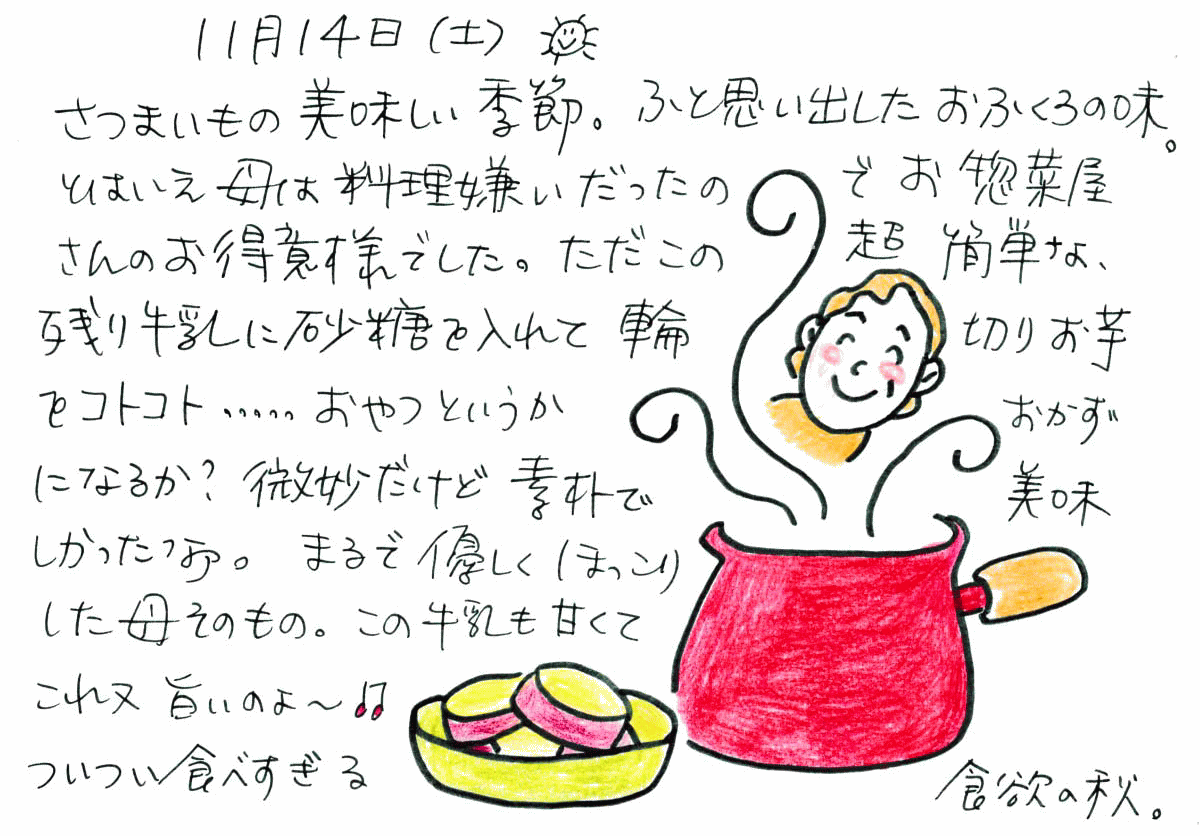 11月14日(土)
さつまいもの美味しい季節。ふと思い出したおふくろの味。
とはいえ母は料理嫌いだったのでお惣菜屋
さんのお得意様でした。ただこの超簡単な、
残り牛乳に砂糖を入れて輪切りお芋
をコトコト……おやつというかおかず
になるか?微妙だけど素朴で美味
しかったっす。まるで優しくほっこり
した母そのもの。この牛乳も甘くて
これ又旨いのよ〜♫
ついつい食べすぎる食欲の秋。